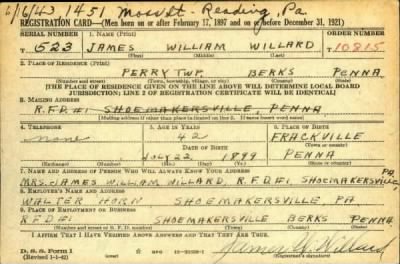 2/16/42, 1451 Moss St - Reading, Pa.
REGISTRATION CARD—(Men born on or after February 17, 1897 and on or before December 31, 1921)
SERIAL NUMBER 1. NAME (Print) ORDER NUMBER
T 523 JAMES WILLIAM WILLARD T10815
(First) (Middle) (Last)
2. PLACE OF RESIDENCE (Print)
PERRY TWP. BERKS PENNA
(Number and street) (Town, township, village, or city) (County) (State)
[THE PLACE OF RESIDENCE GIVEN ON THE LINE ABOVE WILL DETERMINE LOCAL BOARD
JURISDICTION; LINE 2 OF REGISTRATION CERTIFICATE WILL BE IDENTICAL]
3. MAILING ADDRESS
R.F.D. #1 SHOEMAKERSVILLE, PENNA
[Mailing address if other than place indicated on line 2. If same insert word same]
4. TELEPHONE 5. AGE IN YEARS 6. PLACE OF BIRTH
none 42 FRACKVILLE
DATE OF BIRTH
JULY 22, 1899 PENNA
(Exchange) (Number) (Mo.) (Day) (Yr.) (State or country)
7. NAME AND ADDRESS OF PERSON WHO WILL ALWAYS KNOW YOUR ADDRESS
MRS. JAMES WILLIAM WILLARD, R.F.D. #1 SHOEMAKERSVILLE PA.
8. EMPLOYER'S NAME AND ADDRESS
WALTER HORN SHOEMAKERSVILLE PA
9. PLACE OF EMPLOYMENT OR BUSINESS
R.F.D #1 SHOEMAKERSVILLE BERKS PENNA
(Number and street or R. F. D. number) (Town) (County) (State)
I AFFIRM THAT I HAVE VERIFIED ABOVE ANSWERS AND THAT THEY ARE TRUE.
D. S. S. Form 1
(Revised 1-1-42)
James W. Willard